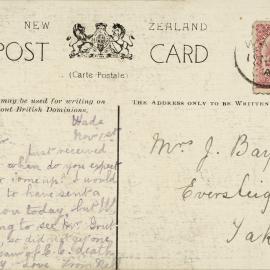 NEW ZEALAND
POST CARD
(Carte Postale)
may be used for writing on
out British Dominions.
THE ADDRESS ONLY TO BE WRITTEN
Wade
Nov 1st
Just received
when do you expect
to "come up". I would
to have sent a
you today, but
ing to see Mr.
so did not get one.
saw of death
Love from
Mrs J. Bay
Eversleigh
Tak